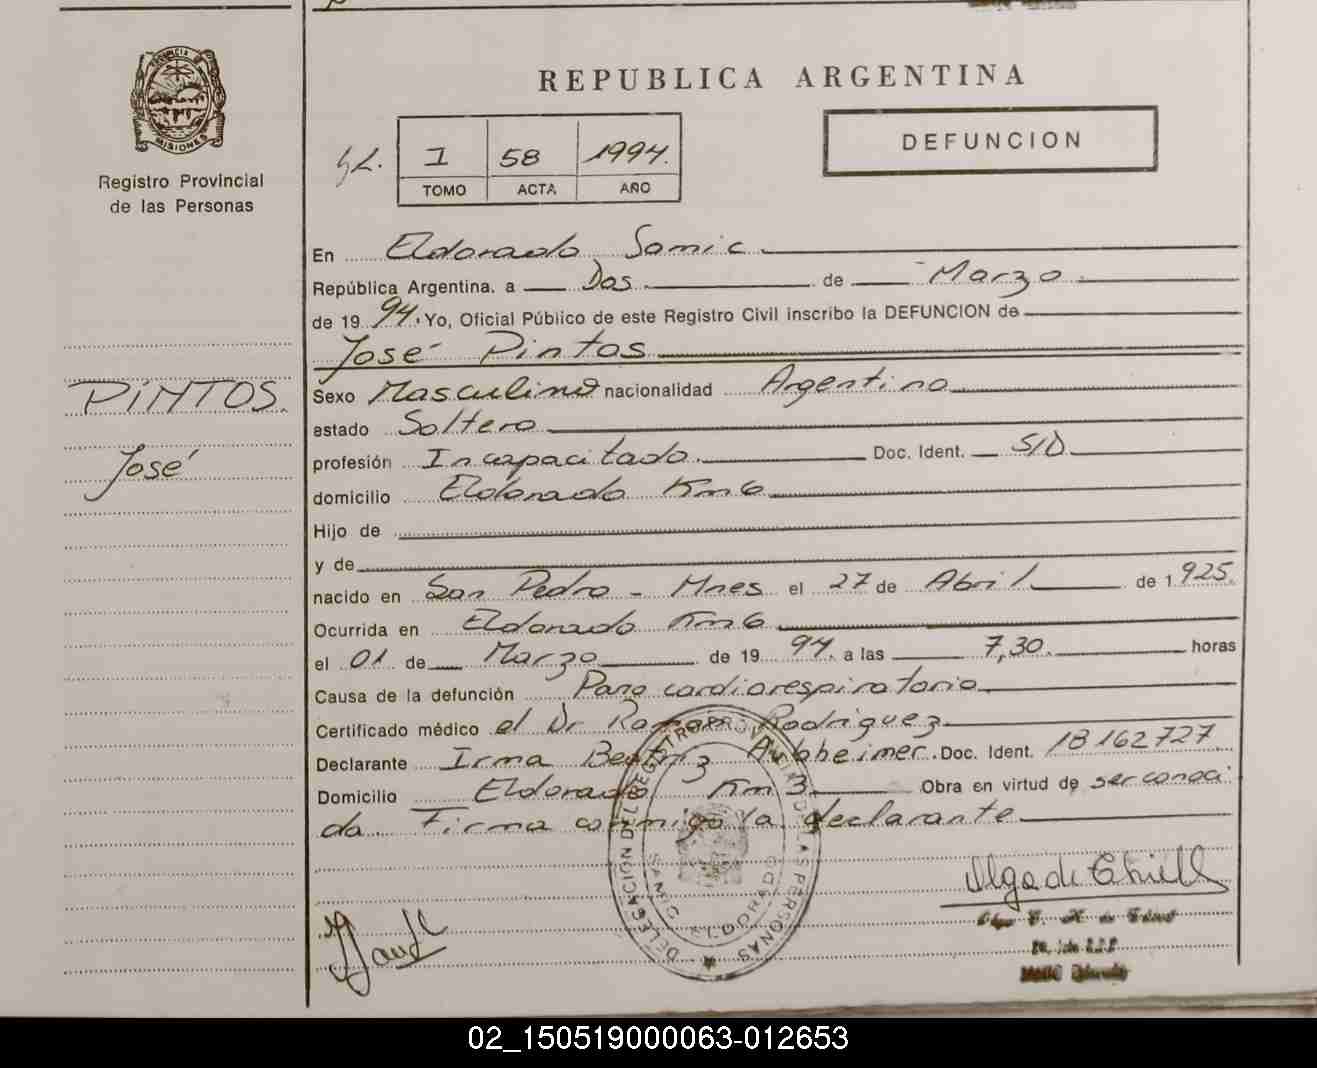 PROVINCIA DE
MISIONES
Registro Provincial
de las Personas
PINTOS.
José
REPUBLICA ARGENTINA
DEFUNCION
I 58 1994.
TOMO ACTA AÑO
En Eldorado Samic
República Argentina. a Dos. de Marzo
de 1994. Yo, Oficial Público de este Registro Civil inscribo la DEFUNCION de
José Pintos
Sexo Masculino nacionalidad Argentina
estado Soltero
profesión Incapacitado. Doc. Ident. S/D
domicilio Eldorado Km6
Hijo de
y de
nacido en San Pedro - Mnes el 27 de Abril de 1.925.
Ocurrida en Eldorado Km6
el 01 de Marzo de 1994. a las 7,30. horas
Causa de la defunción Paro cardiorespiratorio
Certificado médico el Dr Ramon Rodriguez
Declarante Irma Beatriz Doc. Ident. 18162727
Domicilio Eldorado Km 3 Obra en virtud de ser conoci
da. Firma conmigo la declarante
DELEGACION DEL REGISTRO PROVINCIAL DE LAS PERSONAS
ELDORADO
Olga de
02_150519000063-012653